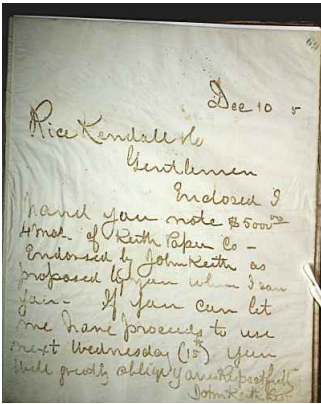 69
Dec 10 5
Rice Kendall Co
Gentlemen
Enclosed I
hand you note $5000⁰⁰
4 mos. of Keith Paper Co –
Endorsed by John Keith as
proposed by you when I saw
you – If you can let
me have proceeds to use
next Wednesday (15th) you
will greatly oblige Yours Respectfully
John Keith